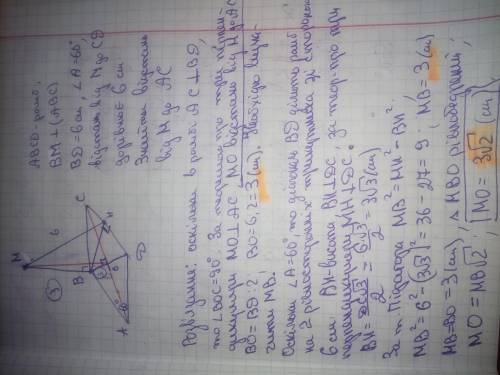 ABCD-ромб,
BM⊥(ABC)
BD=6см, ∠A=60°,
відстань від M до CD
дорівнює 6 см
Знайти відстань
від M до AC
M
6
5
C
H
B
6
D
A
Розв'язання: оскільки в ромбі AC⊥BD,
то ∠BOC=90°. За теоремою про три перпен-
дикуляри MO⊥AC, MO відстань від M до AC
BO=BD:2, BO=6:2=3(см). Необхідно визна-
чити MB.
Оскільки ∠A=60°, то діагональ BD ділить ромб
на 2 рівносторонніх трикутника зі стороною
6 см. BH-висота BH⊥DC, за теор. про три
перпендикуляри MH⊥DC.
BH=DC√3/2=6√3/2=3√3(см)
За т. Піфагора MB²=MH²-BH².
MB²=6²-(3√3)²=36-27=9; MB=3(см)
MB=BO=3(см), △MBO рівнобедрений,
MO=MB√2; MO=3√2(см)